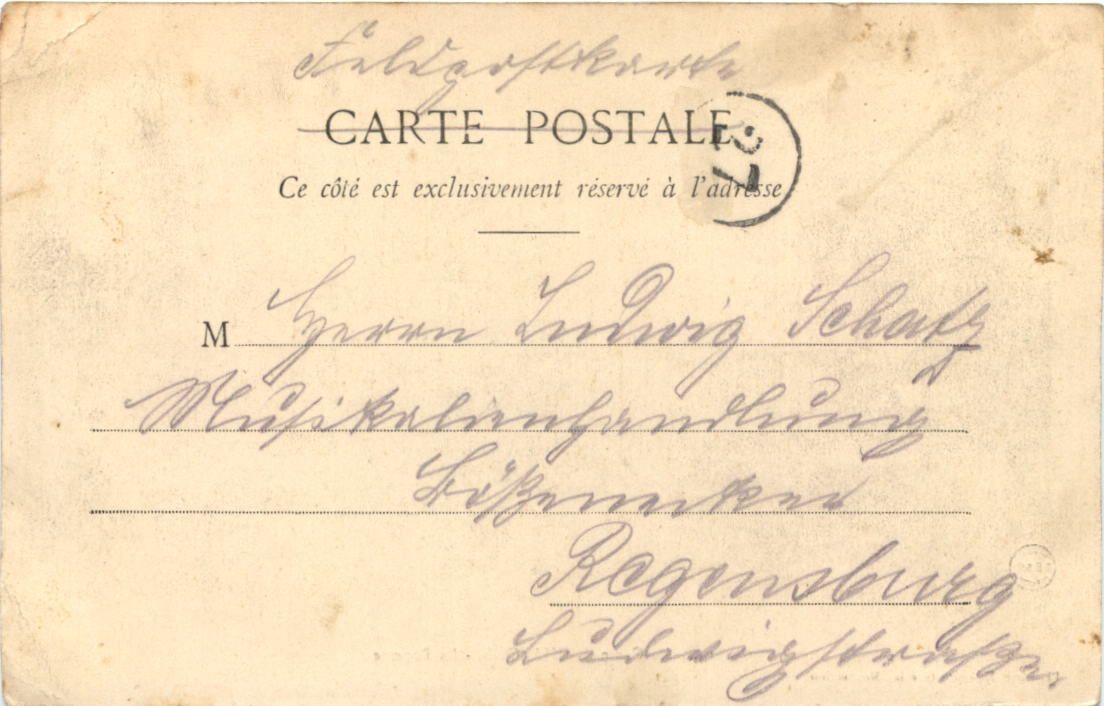 Feldpostkarte
CARTE POSTALE
Ce côté est exclusivement réservé à l'adresse
M Herrn Ludwig Schatz
Musikalienhandlung
Bößenecker
Regensburg
Ludwigstraße